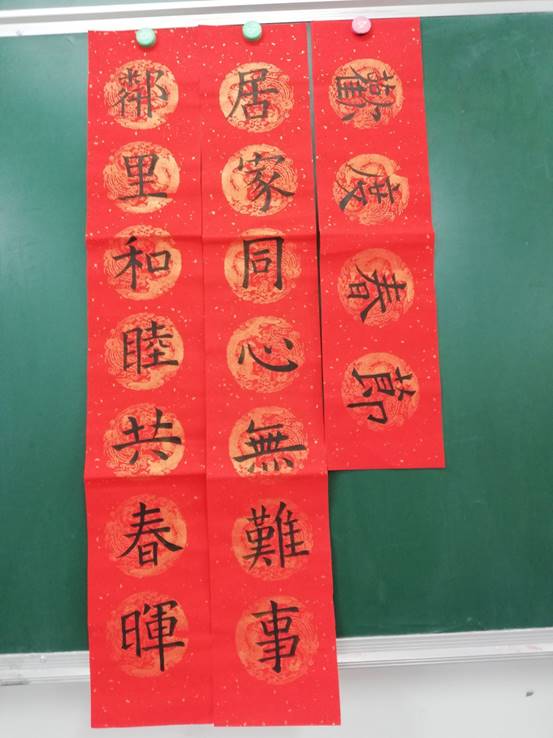 歡度春節
居家同心無難事
鄰里和睦共春暉